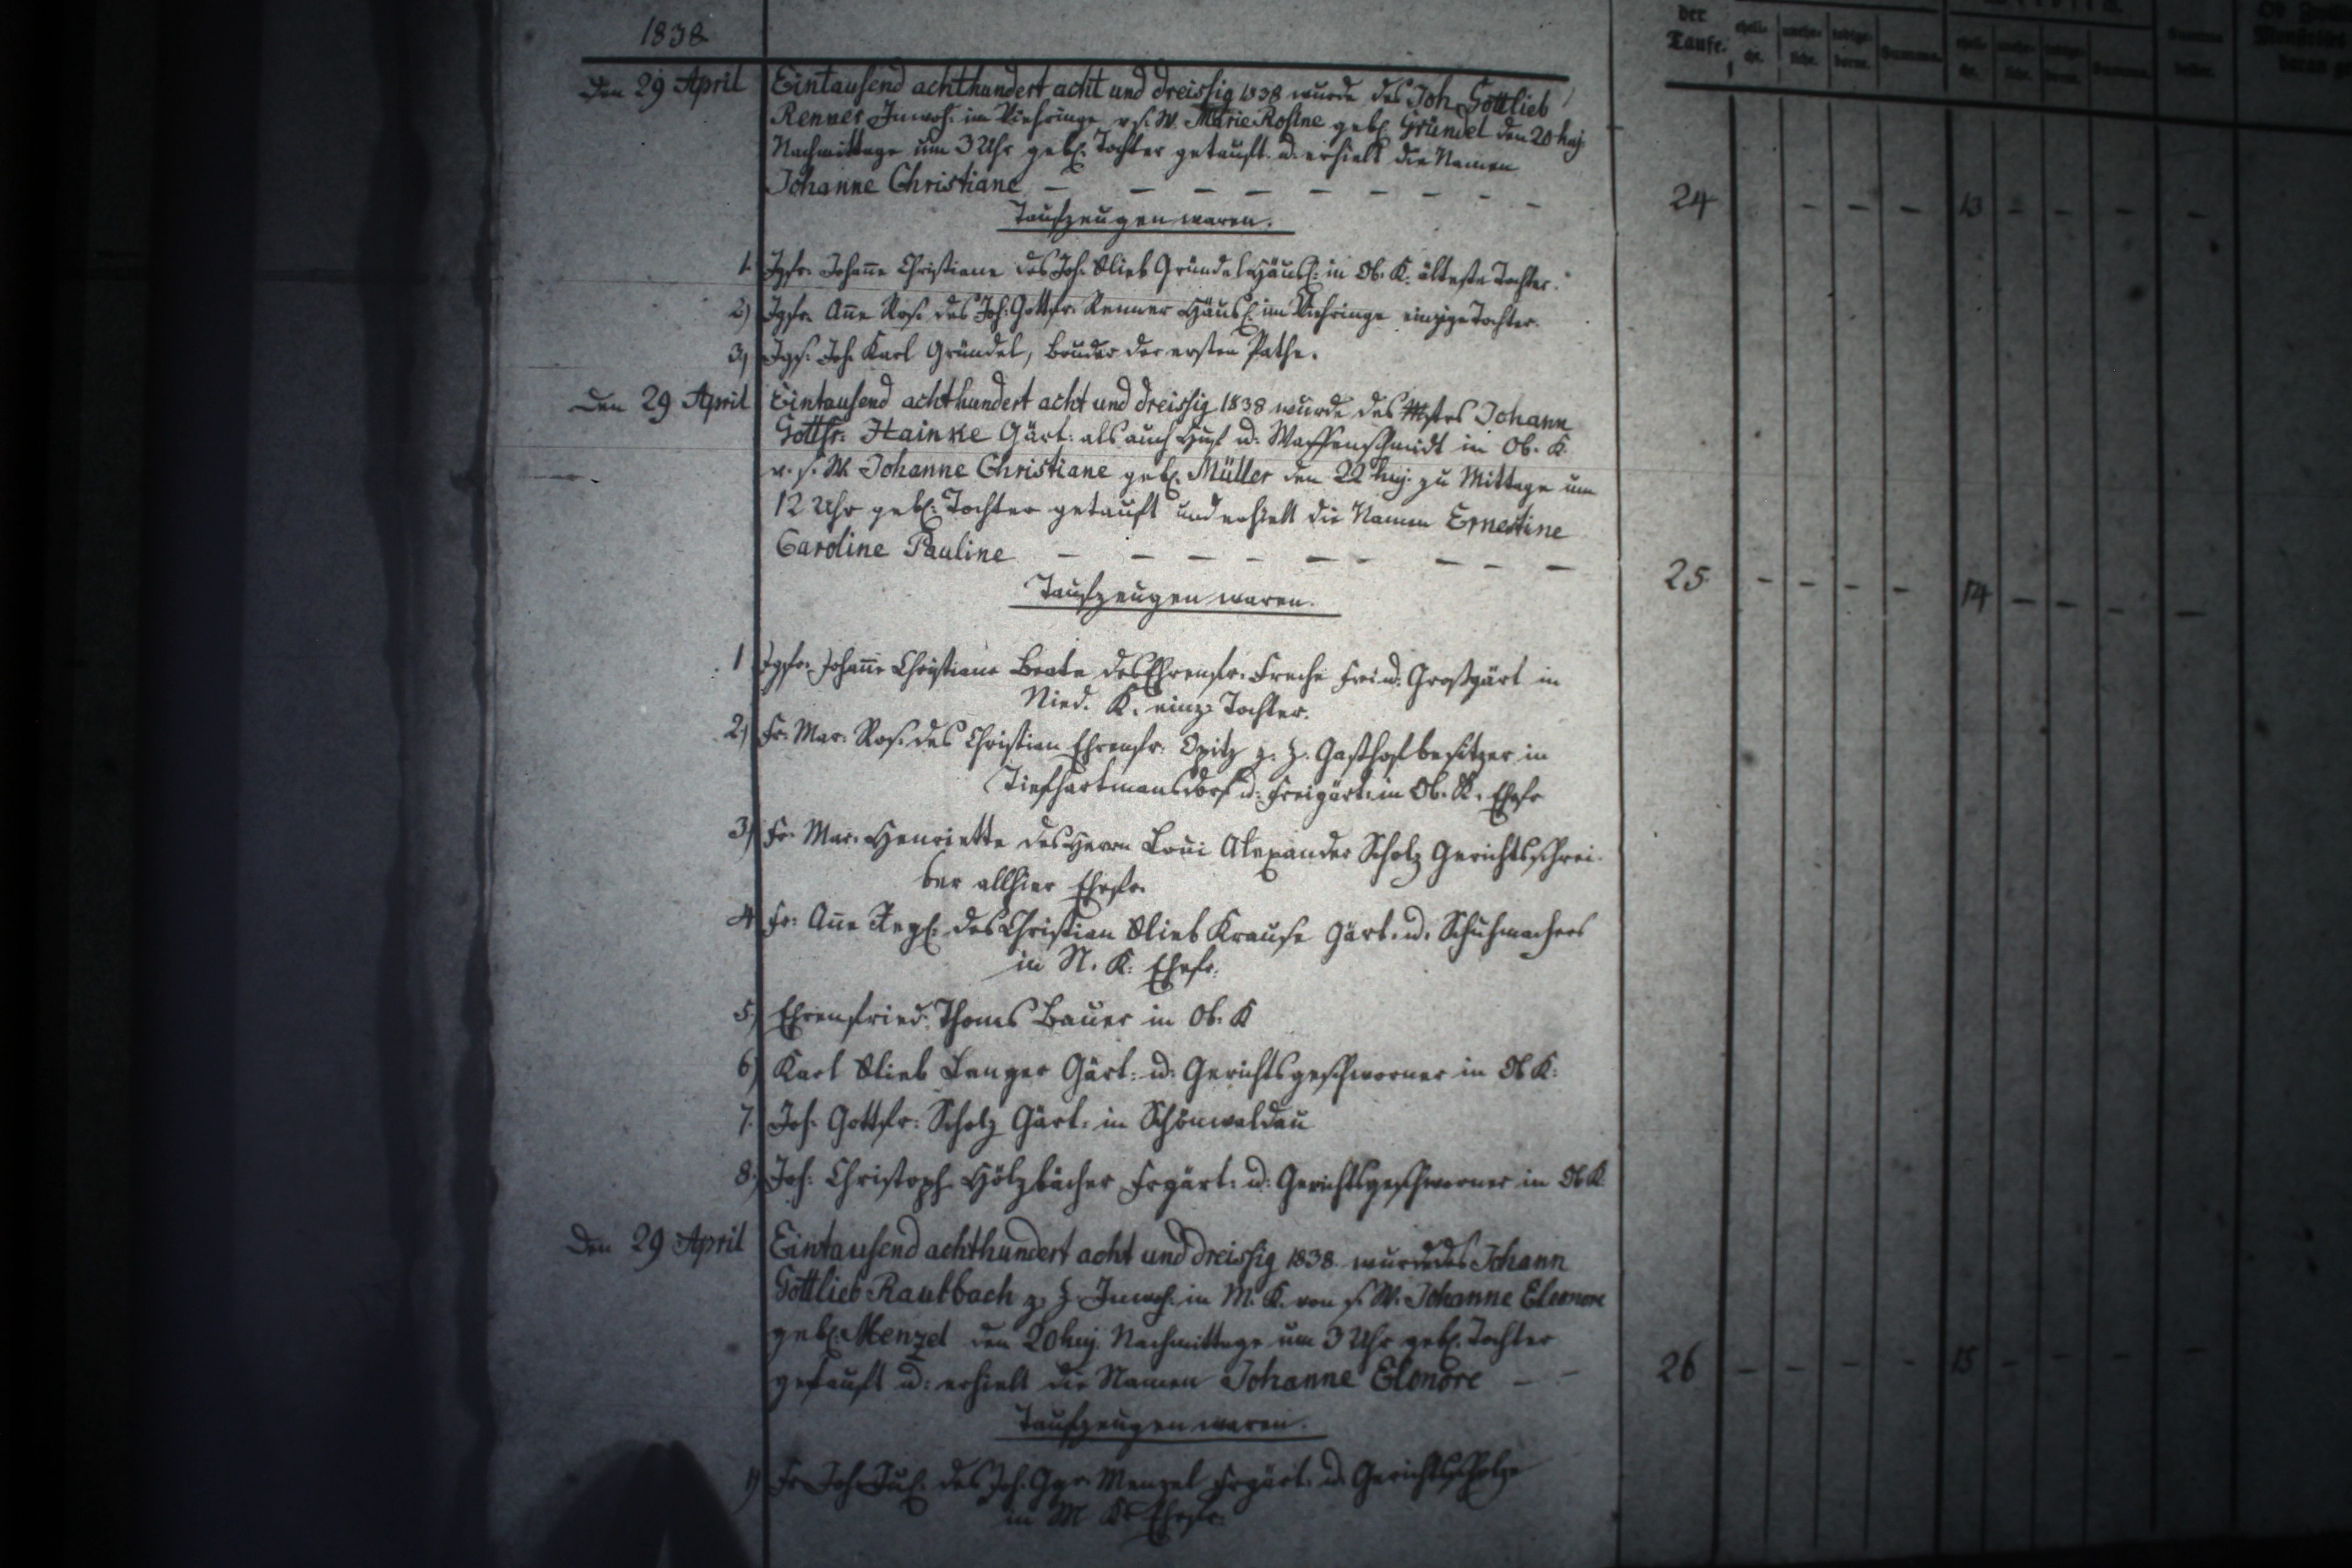 1838
der Taufe.
Den 29 April Eintausend achthundert acht und dreissig 1838 wurde des Joh. Gottlieb
Renner Inwoh. im Viehringe v. s. W. Marie Rosine geb. Gründel den 20 huj.
Nachmittags um 3 Uhr geb. Tochter getauft u. erhielt die Namen
Johanne Christiane — — — — — — — — —
24 — — — 13 — — — —
Taufzeugen waren.
1. Jgfr. Johañe Christiane des Joh. Glieb Gründel Häusl: in Ob. K. älteste Tochter.
2) Jgfr. Añe Ros. des Joh. Gottfr. Renner Häusl. im Viehringe einzige Tochter.
3) Jgs. Joh. Karl Gründel, Bruder der ersten Pathe.
Den 29 April Eintausend achthundert acht und dreissig 1838 wurde des Mstrs Johann
Gottfr. Hainke Gärt: als auch Huf u. Waffenschmidt in Ob. K.
v. s. W. Johanne Christiane geb. Müller den 22 huj. zu Mittage um
12 Uhr geb. Tochter getauft und erhielt die Namen Ernestine
Caroline Pauline — — — — — — — — —
25 — — — — 14 — — — —
Taufzeugen waren.
1 Jgfr. Johañe Christiane Beate des Ehrenfr. Freche Großgärt in
Nied. K. einz. Tochter.
2) Fr. Mar. Ros. des Christian Ehrenfr. Opitz z. Z. Gasthofbesitzer in
Tiefhartmansdorf u. Freigärt. in Ob. K. Ehefr
3) Fr. Mar. Henriette des Herrn Loui Alexander Scholz Gerichtsschrei-
ber allhier Ehefr.
4 Fr. Añe des Christian Glieb Krause Gärt. u. Schuhmachers
in N. K. Ehefr.
5) Ehrenfried Thoms Bauer in Ob. K
6) Karl Glieb Langer Gärt: u: Gerichtsgeschworner in Ob K.
7. Joh. Gottfr: Scholz Gärt: in Schönwaldau
8.) Joh: Christoph Hölzbächer Frgärt: u: Gerichtsgeschworner in Ob K.
Den 29 April Eintausend achthundert acht und dreissig 1838 wurde des Johann
Gottlieb Raubbach z. Z. Inwoh. in M. K. von s. W. Johanne Eleonore
geb. Menzel den 20 huj. Nachmittags um 3 Uhr geb. Tochter
getauft u: erhielt die Namen Johanne Elonore — —
26 — — — — 15 — — — —
Taufzeugen waren.
1) Fr. Joh. des Joh. Menzel Frgärt. u. Gerichtsscholze
in M K. Ehefr.